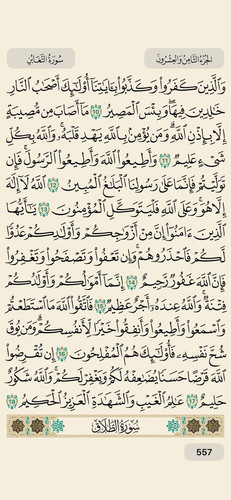 الجزء الثامن والعشرون
سورة التغابن
وَٱلَّذِينَ كَفَرُوا۟ وَكَذَّبُوا۟ بِـَٔايَـٰتِنَآ أُو۟لَـٰٓئِكَ أَصْحَـٰبُ ٱلنَّارِ
خَـٰلِدِينَ فِيهَا ۖ وَبِئْسَ ٱلْمَصِيرُ 10 مَآ أَصَابَ مِن مُّصِيبَةٍ
إِلَّا بِإِذْنِ ٱللَّهِ ۗ وَمَن يُؤْمِنۢ بِٱللَّهِ يَهْدِ قَلْبَهُۥ ۚ وَٱللَّهُ بِكُلِّ
شَىْءٍ عَلِيمٌ 11 وَأَطِيعُوا۟ ٱللَّهَ وَأَطِيعُوا۟ ٱلرَّسُولَ ۚ فَإِن
تَوَلَّيْتُمْ فَإِنَّمَا عَلَىٰ رَسُولِنَا ٱلْبَلَـٰغُ ٱلْمُبِينُ 12 ٱللَّهُ لَآ إِلَـٰهَ
إِلَّا هُوَ ۚ وَعَلَى ٱللَّهِ فَلْيَتَوَكَّلِ ٱلْمُؤْمِنُونَ 13 يَـٰٓأَيُّهَا
ٱلَّذِينَ ءَامَنُوٓا۟ إِنَّ مِنْ أَزْوَٰجِكُمْ وَأَوْلَـٰدِكُمْ عَدُوًّا
لَّكُمْ فَٱحْذَرُوهُمْ ۚ وَإِن تَعْفُوا۟ وَتَصْفَحُوا۟ وَتَغْفِرُوا۟
فَإِنَّ ٱللَّهَ غَفُورٌ رَّحِيمٌ 14 إِنَّمَآ أَمْوَٰلُكُمْ وَأَوْلَـٰدُكُمْ
فِتْنَةٌ ۚ وَٱللَّهُ عِندَهُۥٓ أَجْرٌ عَظِيمٌ 15 فَٱتَّقُوا۟ ٱللَّهَ مَا ٱسْتَطَعْتُمْ
وَٱسْمَعُوا۟ وَأَطِيعُوا۟ وَأَنفِقُوا۟ خَيْرًا لِّأَنفُسِكُمْ ۗ وَمَن يُوقَ
شُحَّ نَفْسِهِۦ فَأُو۟لَـٰٓئِكَ هُمُ ٱلْمُفْلِحُونَ 16 إِن تُقْرِضُوا۟
ٱللَّهَ قَرْضًا حَسَنًا يُضَـٰعِفْهُ لَكُمْ وَيَغْفِرْ لَكُمْ ۚ وَٱللَّهُ شَكُورٌ
حَلِيمٌ 17 عَـٰلِمُ ٱلْغَيْبِ وَٱلشَّهَـٰدَةِ ٱلْعَزِيزُ ٱلْحَكِيمُ 18
سورة الطلاق
557